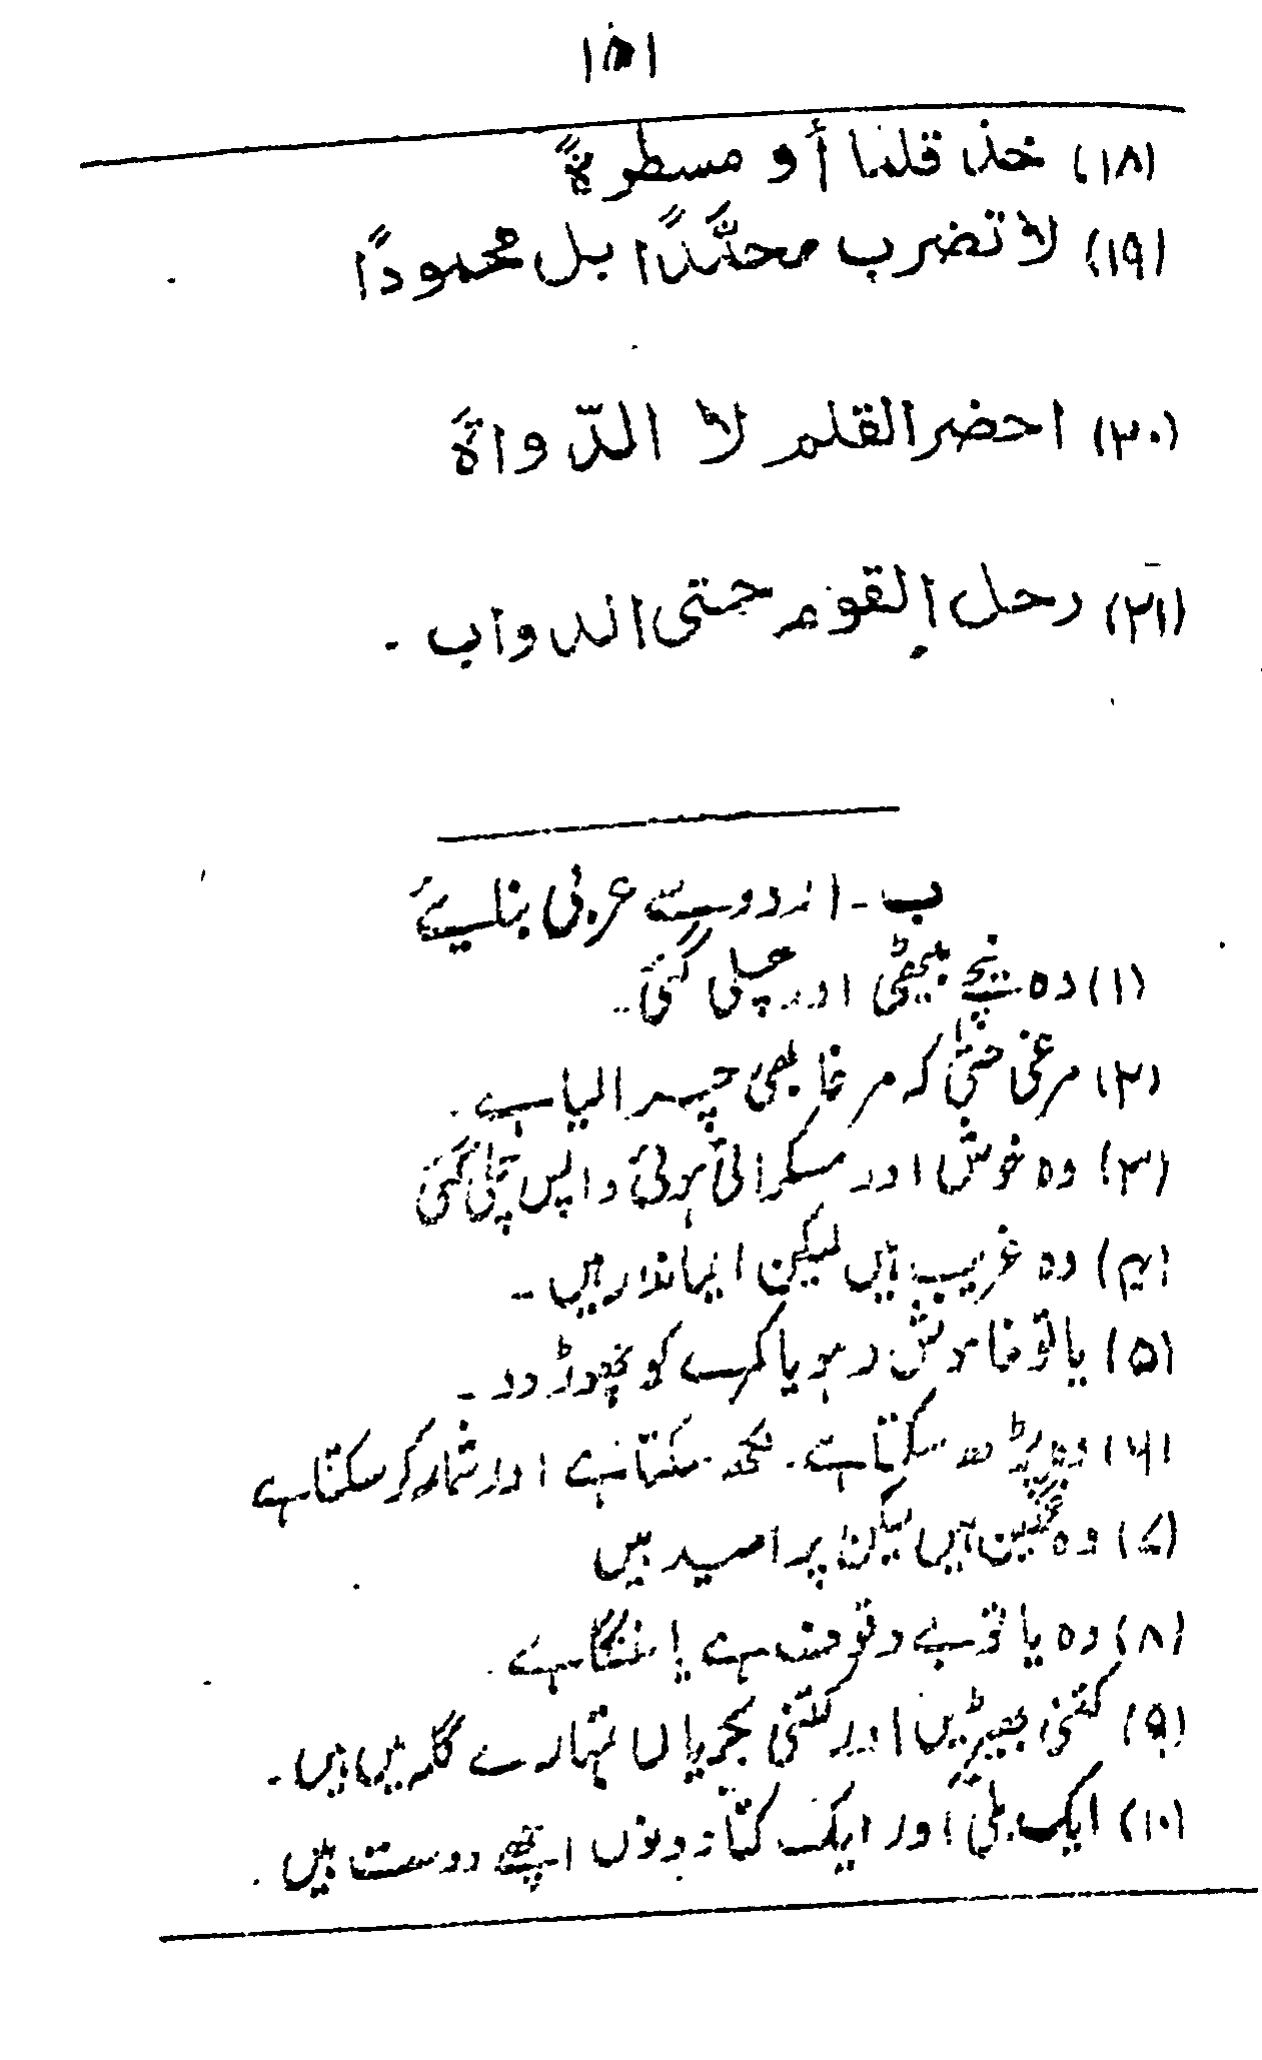 ۱۵۱
(۱۸) خذ قلما أو مسطرةً
(۱۹) لا تضرب محمّدًا بل محمودًا
(۲۰) احضر القلم لا الدّواةَ
(۲۱) رحل القوم حتى الدواب ۔
ب ۔ اردو سے عربی بنائیے
(۱) وہ نیچے بیٹھی اور چلی گئی ۔
(۲) مرغی حتیٰ کہ مرغا بھی چرا لیا ہے ۔
(۳) وہ خوش اور مسکراتی ہوئی واپس چلی گئی
(۴) وہ غریب ہیں لیکن ایماندار ہیں ۔
(۵) یا تو خاموش رہو یا کمرے کو چھوڑ دو ۔
(۶) وہ پڑھ سکتا ہے ۔ لکھ سکتا ہے اور شمار کر سکتا ہے
(۷) وہ غمگین ہیں لیکن پر امید ہیں
(۸) وہ یا تو بے وقوف ہے یا
(۹) کتنی بھیڑیں اور کتنی بکریاں تمہارے گلہ میں ہیں ۔
(۱۰) ایک بلی اور ایک کتا دونوں اچھے دوست ہیں ۔